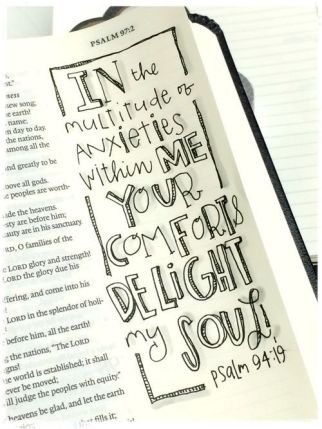 PSALM 97:2
ness
ew song;
e earth!
name;
day to day.
the nations,
among all the
nd greatly to be
bove all gods.
e peoples are worth-
ade the heavens.
sty are before him;
auty are in his sanctuary.
RD, O families of the
LORD glory and strength!
LORD the glory due his
ffering, and come into his
LORD in the splendor of holi-
before him, all the earth!
the nations, "The LORD
gns!
e world is established; it shall
ever be moved;
ill judge the peoples with equity."
heavens be glad, and let the earth
that fills it;
IN the
multitude of
ANXIETIES
within ME
YOUR
COMFORTS
DELIGHT
my SOUL!
psalm 94:19